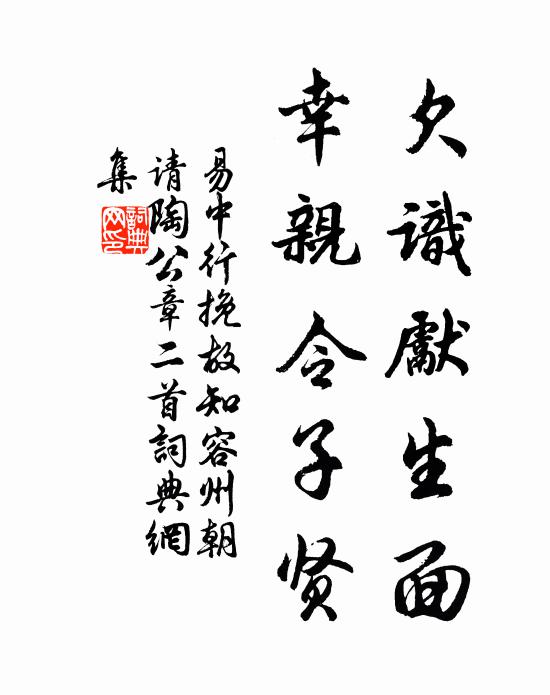 久識獻生面
幸親令子贤
易中行挽故知容州朝
请陶公章二首詞典網
集
詞典
网印